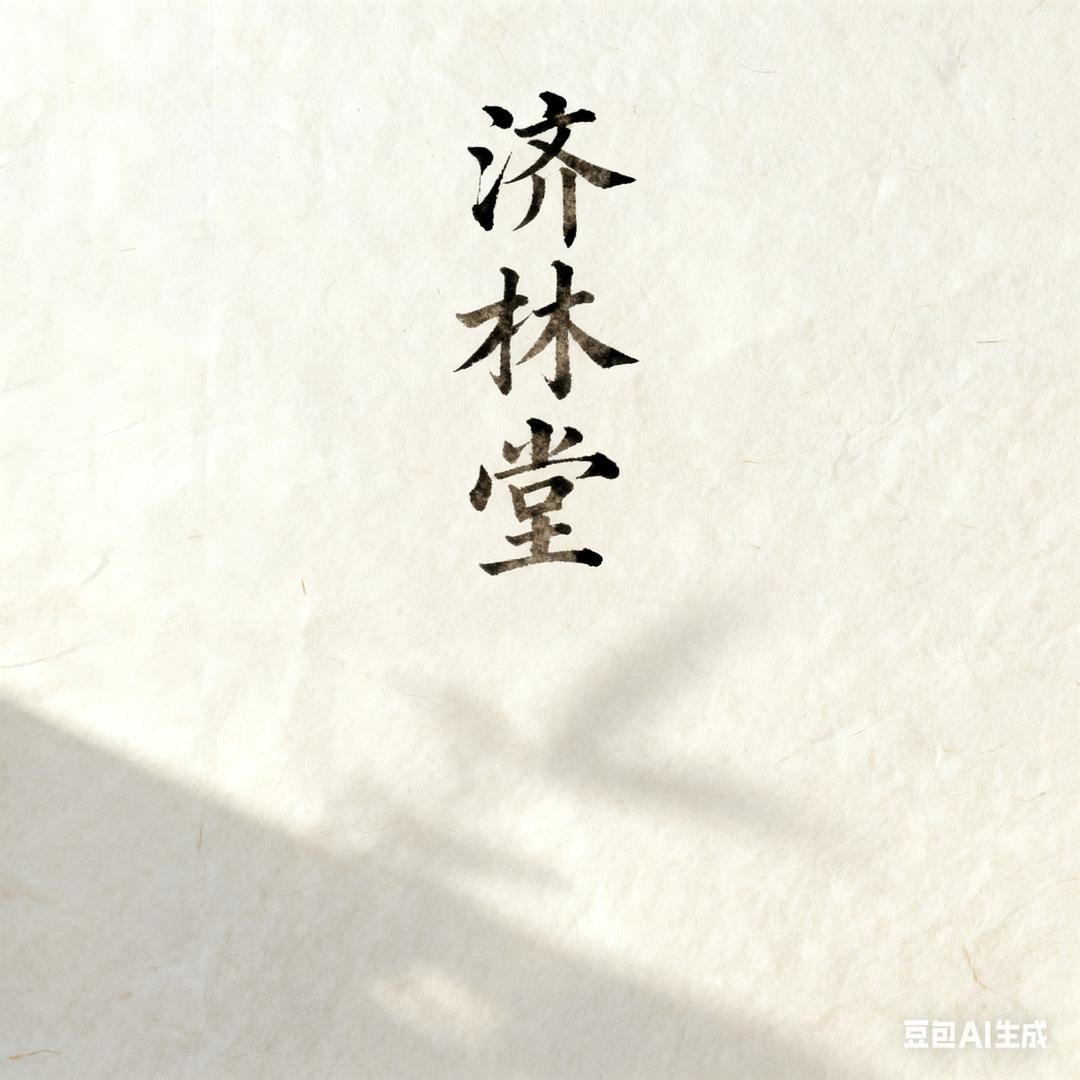 济林堂
豆包AI生成